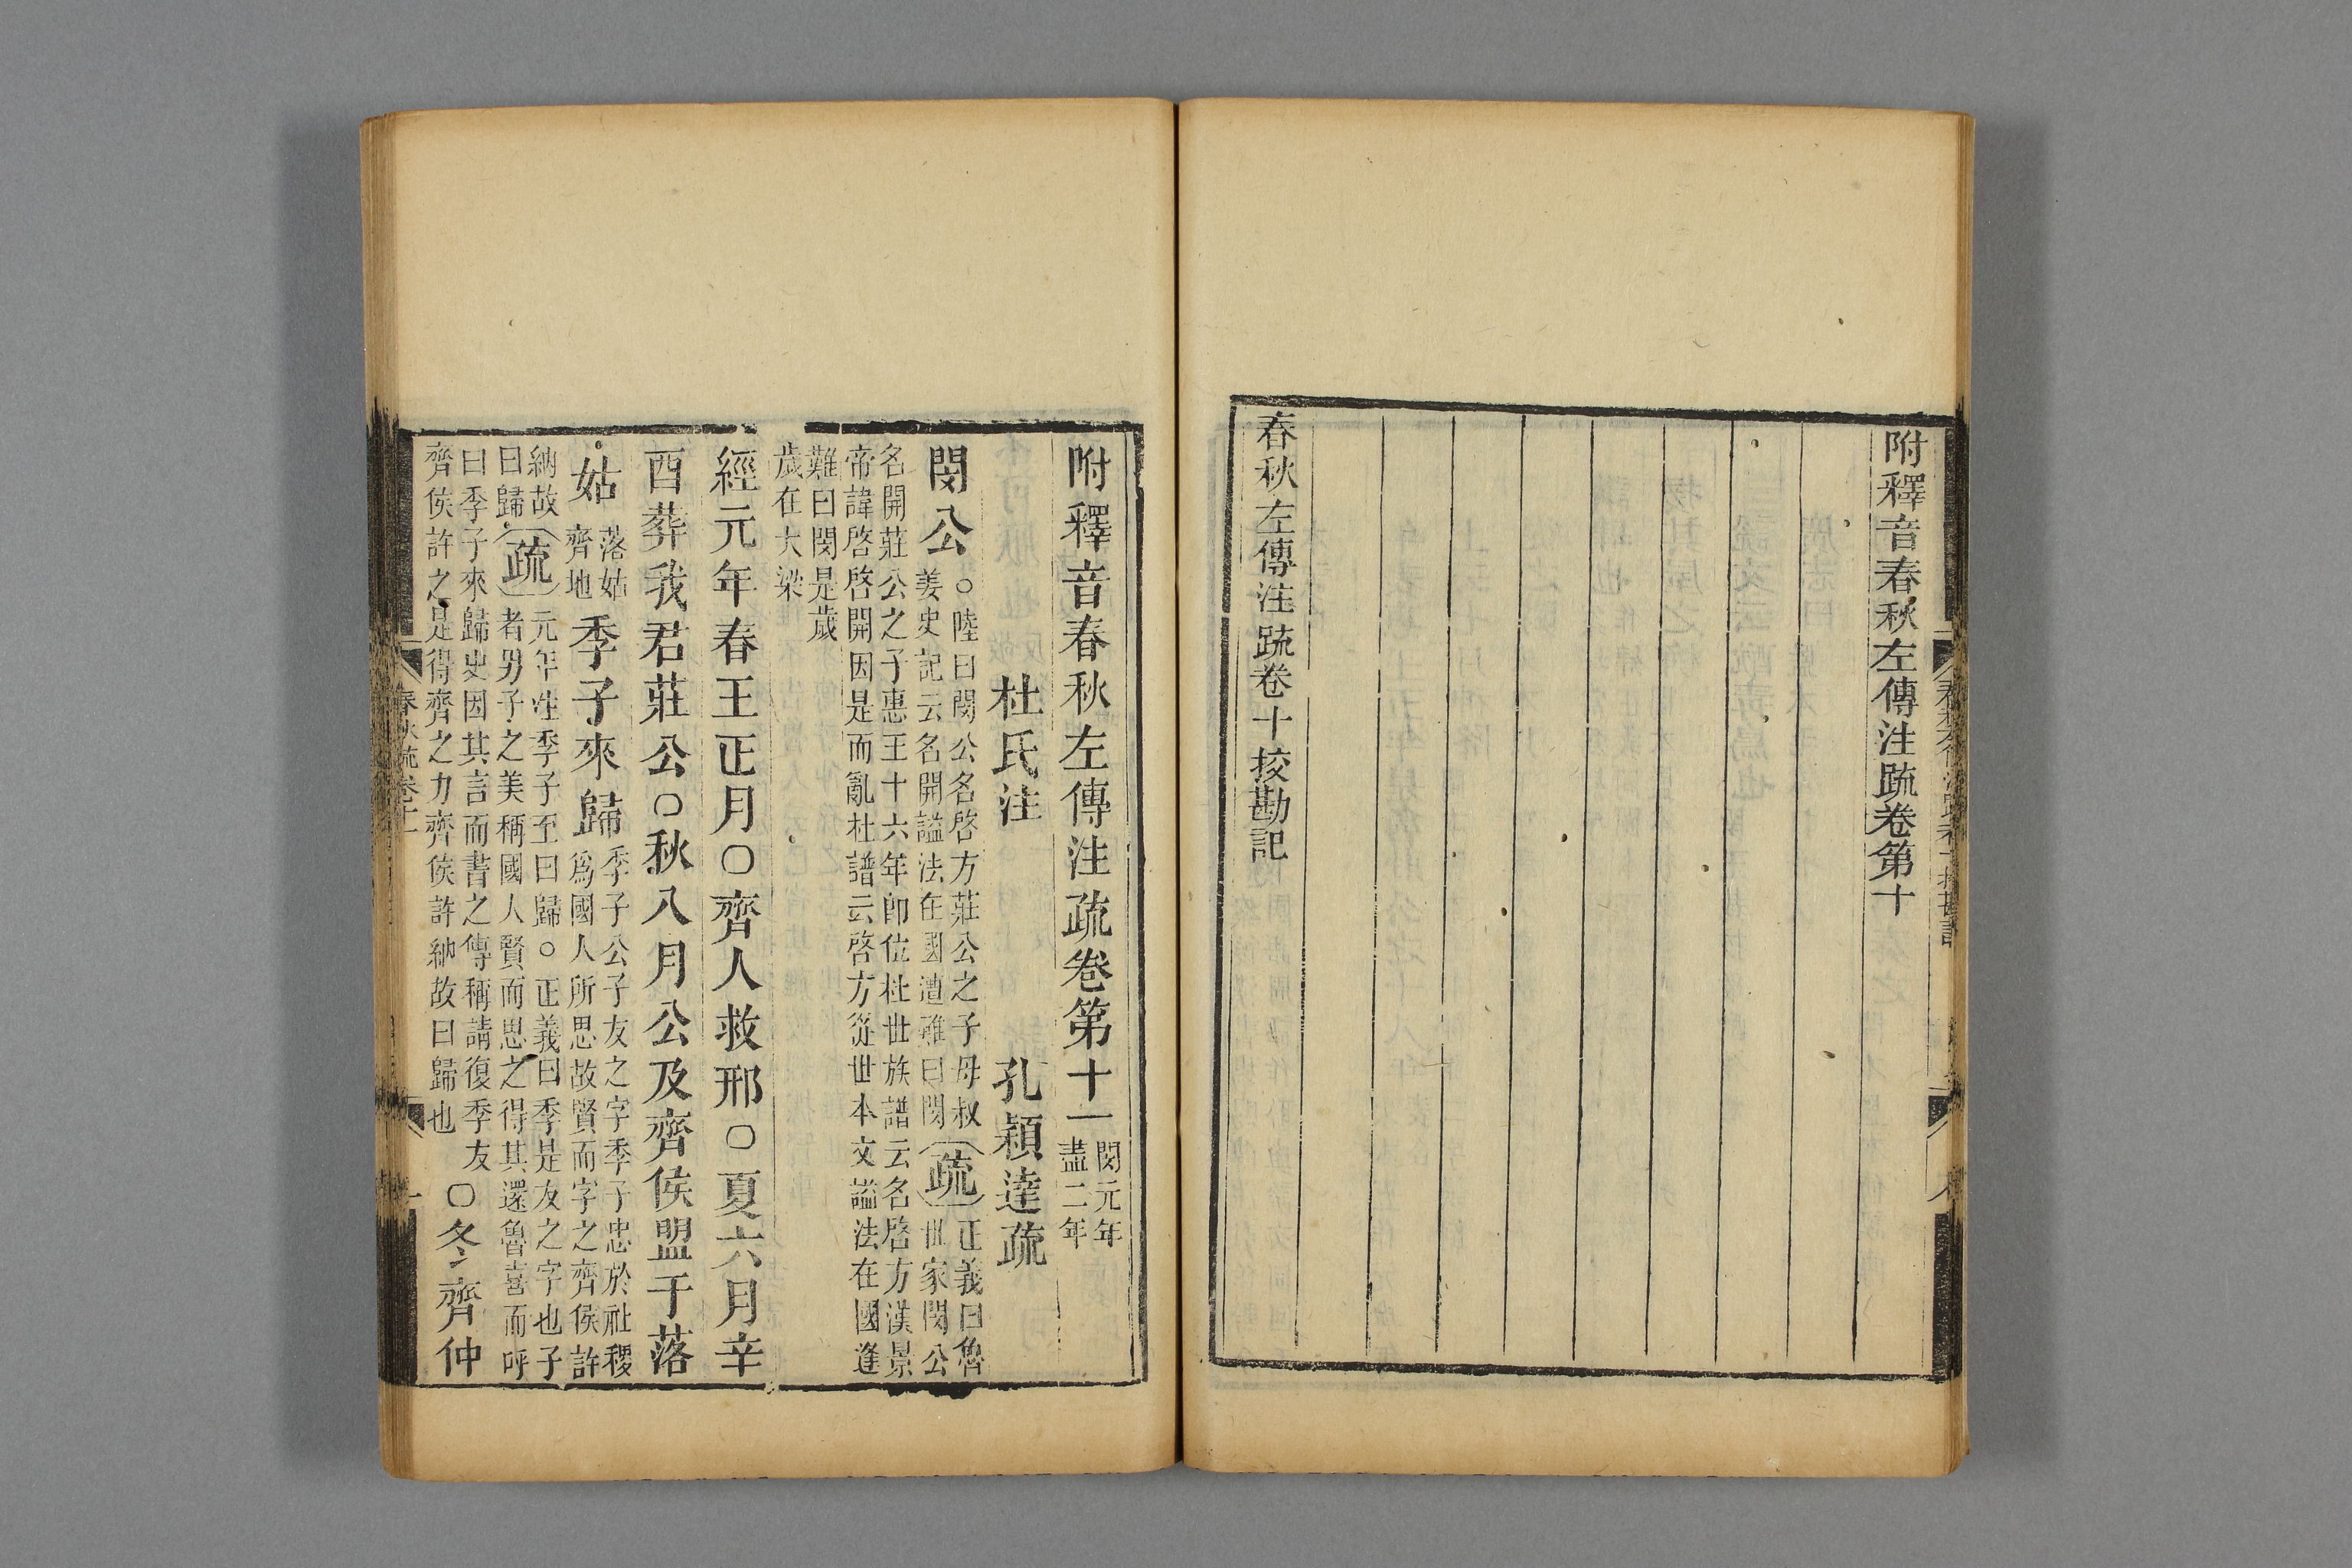 附釋音春秋左傳注䟽卷第十
春秋左傳注䟽卷十挍勘記
附釋音春秋左傳注疏卷第十一
閔元年
盡二年
杜氏注 孔穎達疏
閔公
○陸曰閔公名啓方莊公之子母叔
姜史記云名開謚法在國遭難曰閔
疏
正義曰魯
世家閔公
名開莊公之子惠王十六年卽位杜世族譜云名啓方漢景
帝諱啓啓開因是而亂杜譜云啓方從世本文謚法在國逢
難曰閔是歲
歲在大梁
經元年春王正月○齊人救邢○夏六月辛
酉葬我君莊公○秋八月公及齊侯盟于落
姑
落姑
齊地
季子來歸
季子公子友之字季子忠於社稷
爲國人所思故賢而字之齊侯許
納故
曰歸
疏
元年注季子至曰歸○正義曰季是友之字也子
者男子之美稱國人賢而思之得其還魯喜而呼
曰季子來歸史因其言而書之傳稱請復季友
齊侯許之是得齊之力齊侯許納故曰歸也
○冬齊仲
春秋疏卷十一